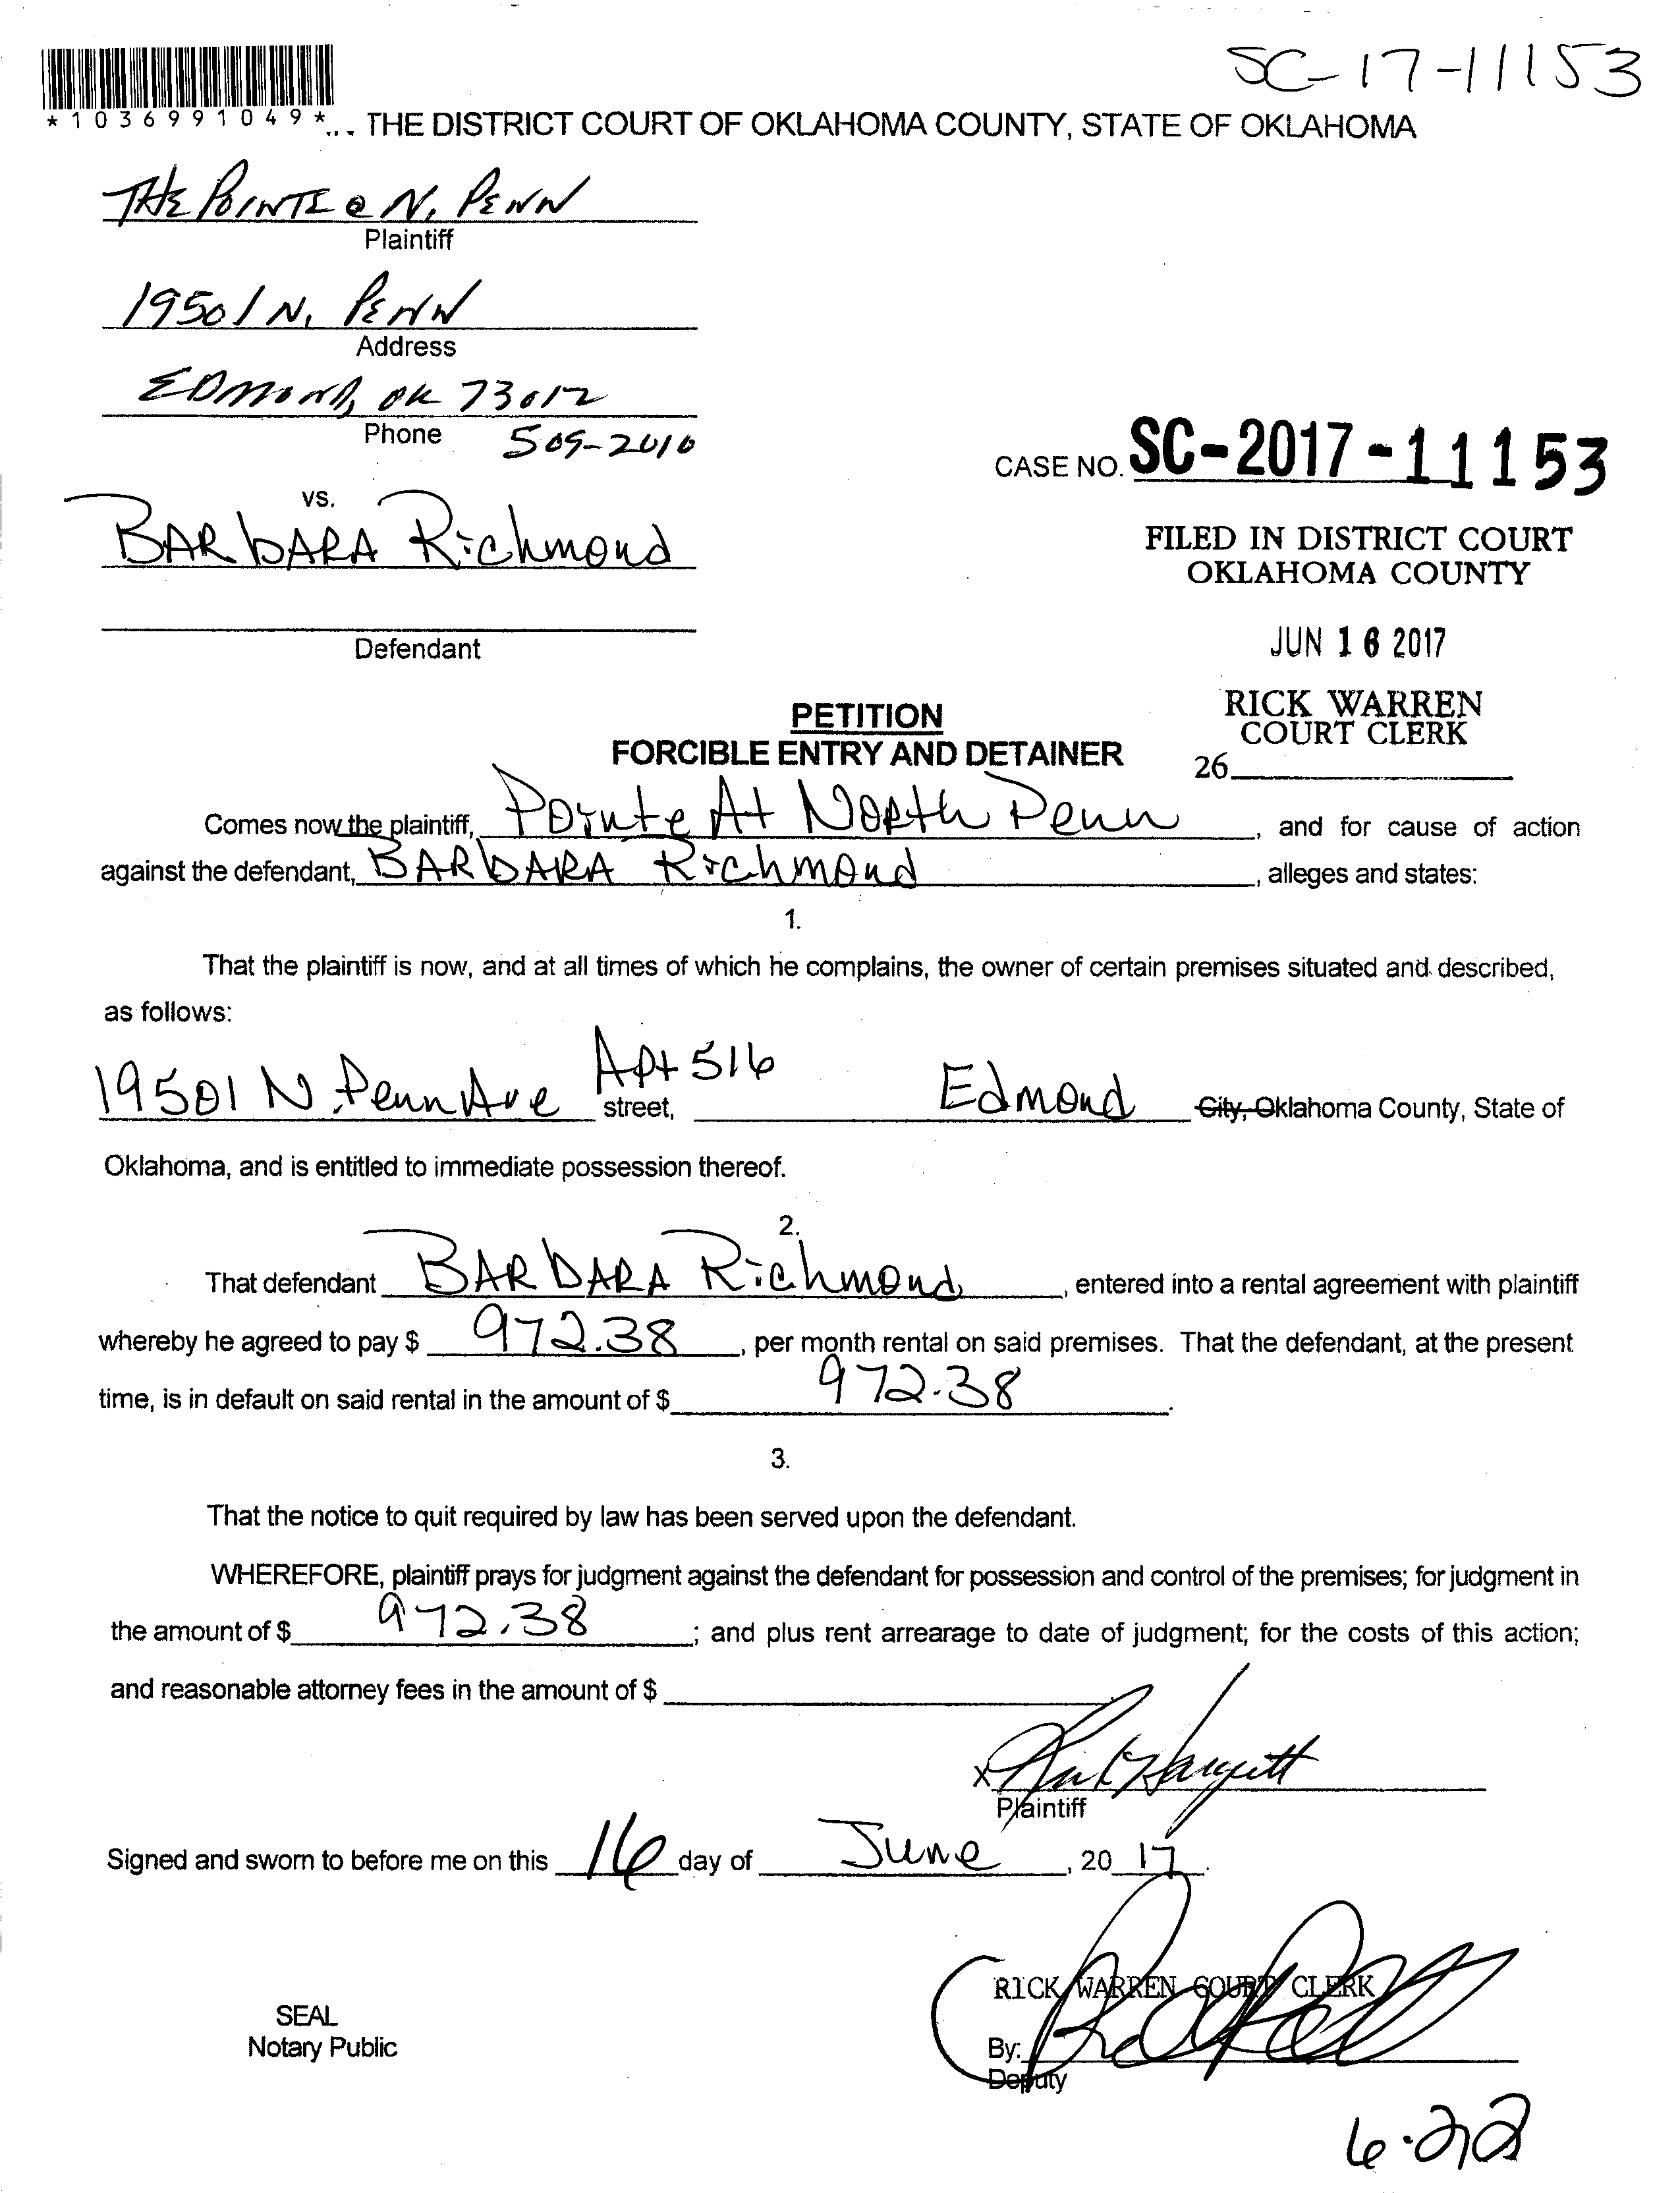 SC-17-11153
*1036991049*
THE DISTRICT COURT OF OKLAHOMA COUNTY, STATE OF OKLAHOMA
THE POINTE @ N. PENN
Plaintiff
19501 N. PENN
Address
EDMOND, OK 73012
Phone 509-2010
CASE NO. SC-2017-11153
vs.
BARBARA Richmond
FILED IN DISTRICT COURT
OKLAHOMA COUNTY
Defendant
JUN 16 2017
RICK WARREN
COURT CLERK
26
PETITION
FORCIBLE ENTRY AND DETAINER
Comes now the plaintiff, Pointe At North Penn, and for cause of action
against the defendant, BARBARA Richmond, alleges and states:
1.
That the plaintiff is now, and at all times of which he complains, the owner of certain premises situated and described,
as follows:
19501 N Penn Ave Apt 516 street, Edmond City, Oklahoma County, State of
Oklahoma, and is entitled to immediate possession thereof.
2.
That defendant BARBARA Richmond, entered into a rental agreement with plaintiff
whereby he agreed to pay $ 972.38, per month rental on said premises. That the defendant, at the present
time, is in default on said rental in the amount of $ 972.38.
3.
That the notice to quit required by law has been served upon the defendant.
WHEREFORE, plaintiff prays for judgment against the defendant for possession and control of the premises; for judgment in
the amount of $ 972.38; and plus rent arrearage to date of judgment; for the costs of this action;
and reasonable attorney fees in the amount of $
X
Plaintiff
Signed and sworn to before me on this 16 day of June, 20 17.
RICK WARREN COURT CLERK
SEAL
Notary Public
By:
Deputy
6-22